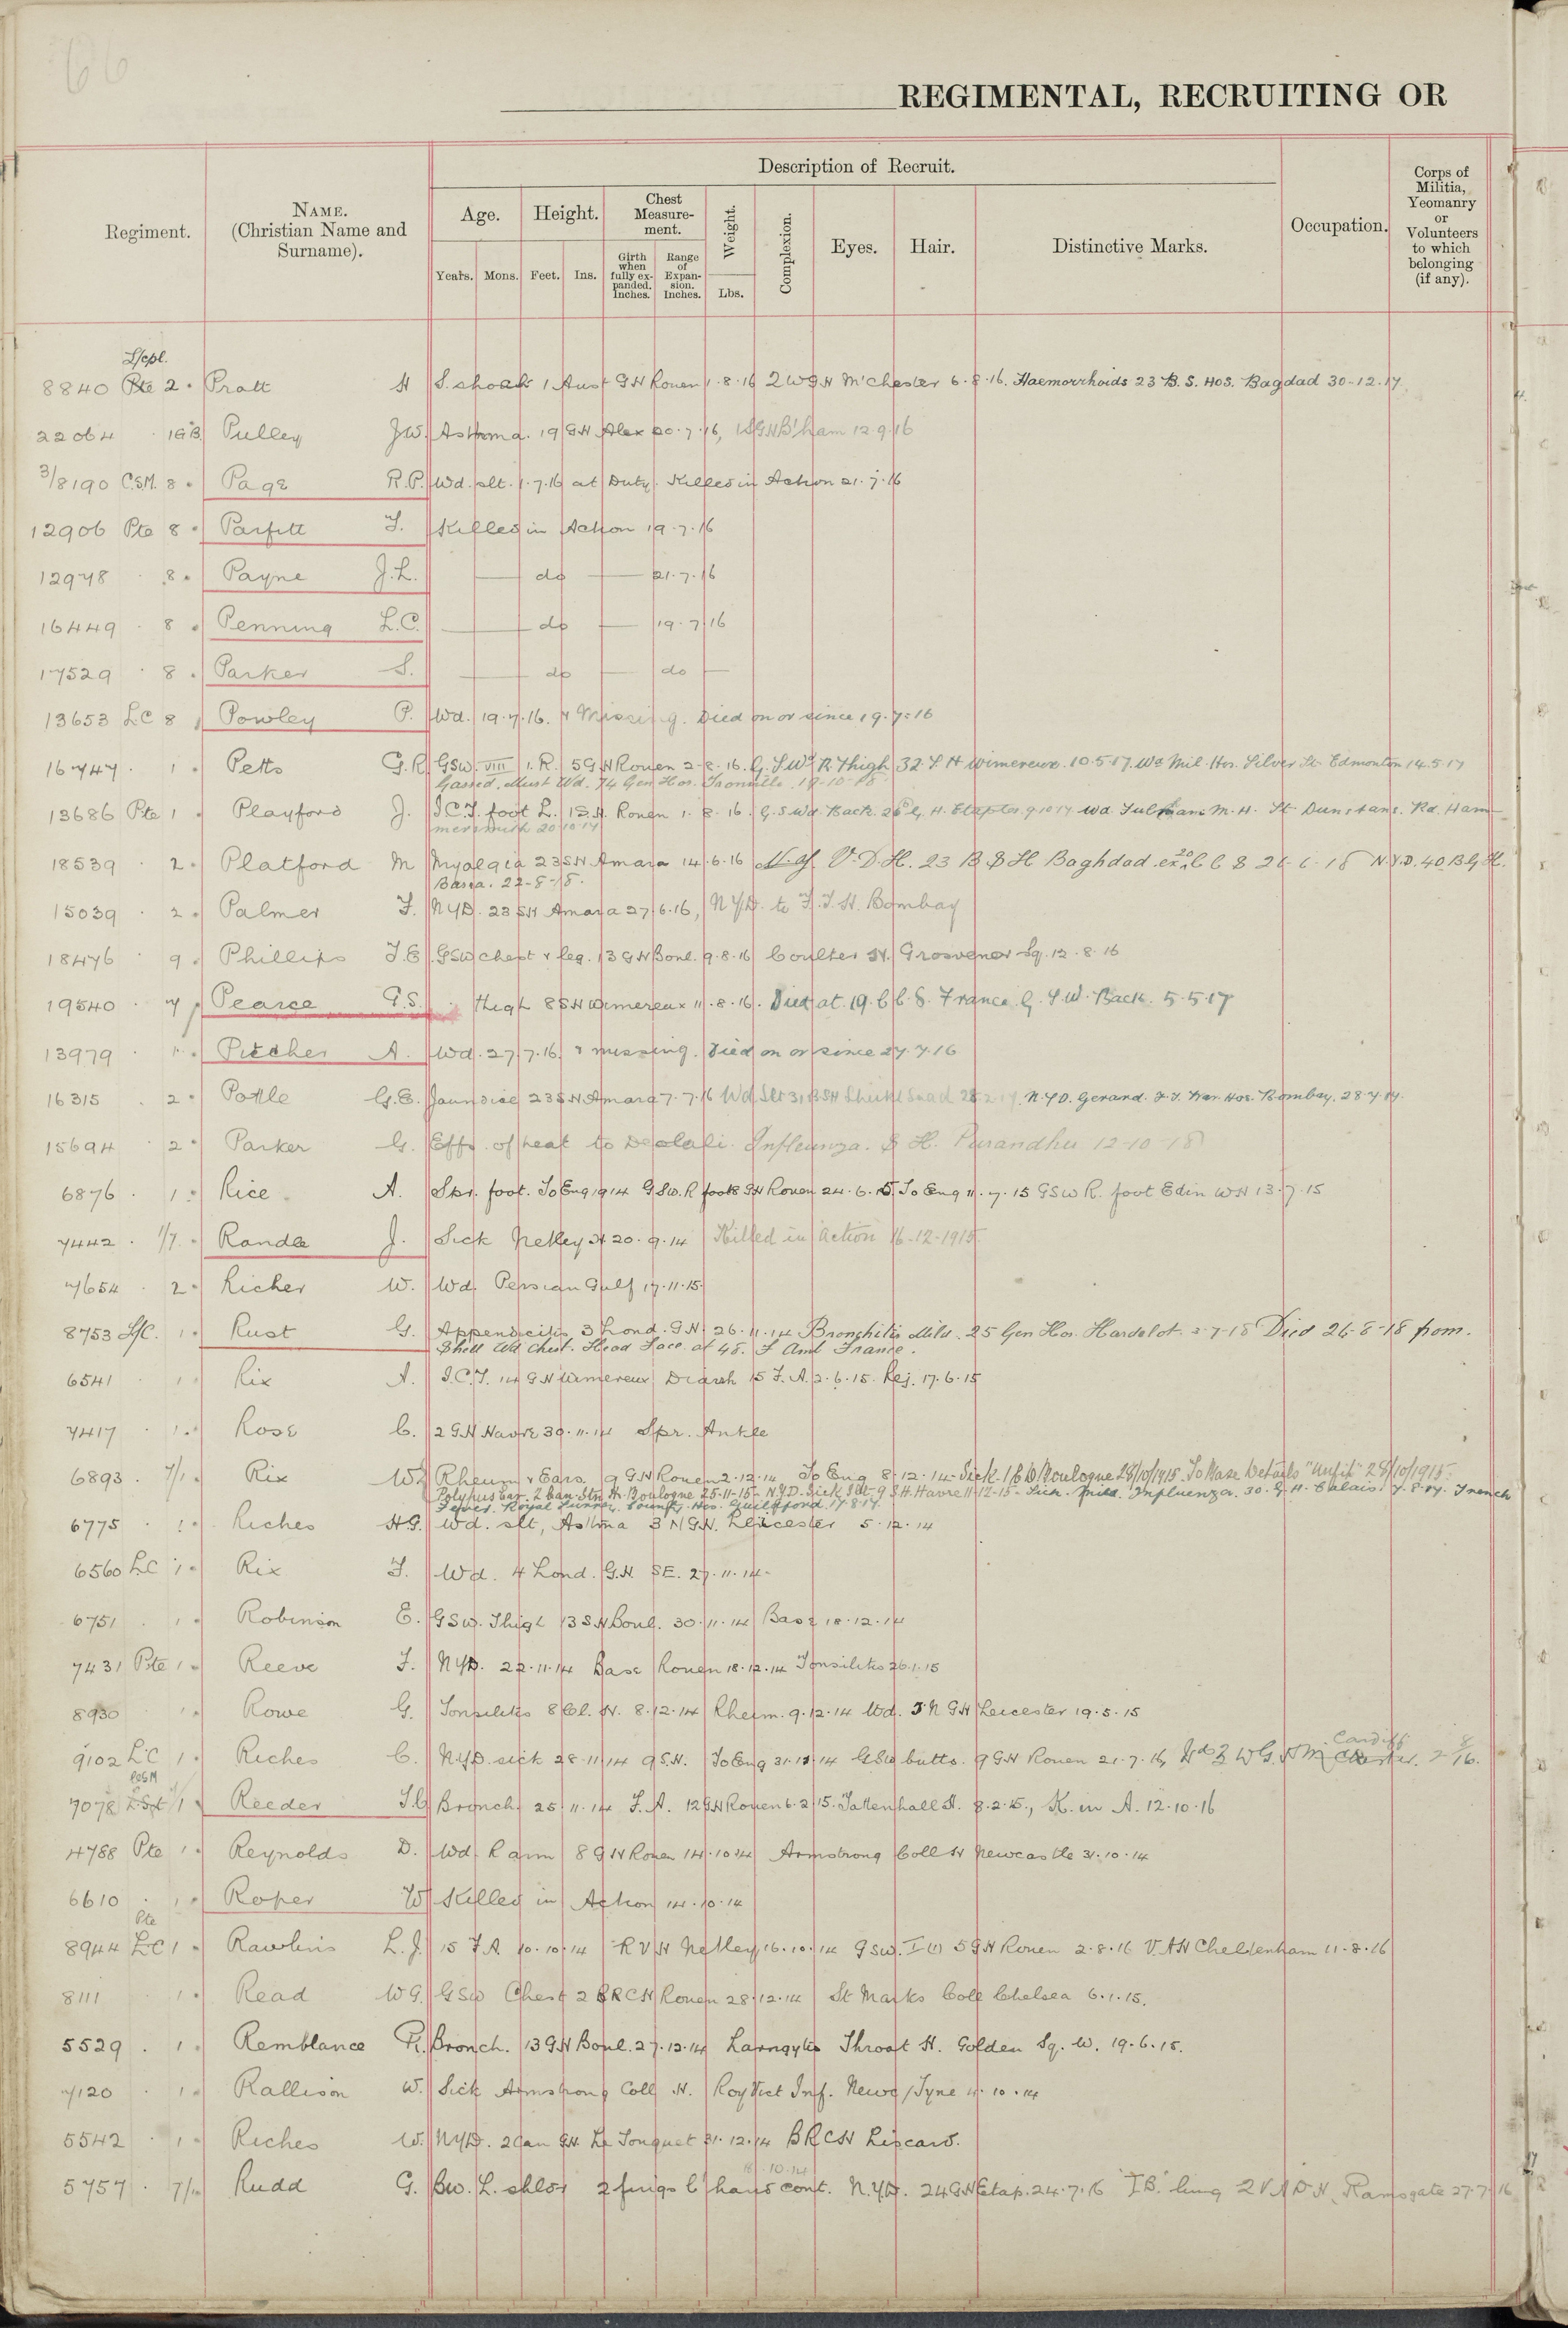 66
REGIMENTAL, RECRUITING OR
Description of Recruit.
Regiment.
NAME.
(Christian Name and
Surname).
Age.
Height.
Chest
Measure-
ment.
Weight.
Complexion.
Eyes.
Hair.
Distinctive Marks.
Occupation.
Corps of
Militia,
Yeomanry
or
Volunteers
to which
belonging
(if any).
Years.
Mons.
Feet.
Ins.
Girth
when
fully ex-
panded.
Inches.
Range
of
Expan-
sion.
Inches.
Lbs.
L/cpl.
8840 Pte 2 Pratt H S. shock 1 Aust GH Rouen 1.8.16 2 WGH M'chester 6.8.16. Haemorrhoids 23 B.S. HOS. Bagdad 30-12-17
22064 1GB Pulley J.W. Asthma. 19 GH Alex 20.7.16, 1SGH B'ham 12.9.16
3/8190 C.S.M. 8 Page R.P. Wd. slt. 1.7.16 at Duty. Killed in Action 21.7.16
12906 Pte 8 Parfitt J. Killed in Action 19.7.16
12978 8 Payne J.L. do 21.7.16
16449 8 Penning L.C. do 19.7.16
17529 8 Parker S. do do
13653 LC 8 Powley P. Wd. 19.7.16. & Missing. Died on or since 19.7.16
16747 1 Petts G.R. GSW. VIII 1. R. 5 GH Rouen 2.8.16. G.S.Wd R. Thigh 32 S H Wimereux. 10.5.17. Wd Mil. Hos. Silver St. Edmonton 14.5.17
Gassed. Must Wd. 74 Gen Hos. Trouville. 19-10-18
13686 Pte 1 Playford J. I.C.T. foot L. 1 S.H. Rouen 1.8.16. G.S.Wd. Back. 26 G.H. Etaples 9.10.17. Wd. Fulham M.H. St. Dunstans. Rd. Ham
mersmith 20.10.17
18539 2 Platford M Myalgia 23SH Amara 14.6.16 V.D.H. 23 B S H Baghdad ex 20 C C S 26-6-18 N.Y.D. 40 B G H.
Basra. 22-8-18.
15039 2 Palmer F. NYD. 23 SH Amara 27.6.16, NYD. to F.J.H. Bombay
18476 9 Phillips J.E. GSW chest & leg. 13 GH Boul. 9.8.16 Coulter H. Grosvenor Sq. 12.8.16
19540 7 Pearce G.S. thigh 8 SH Wimereux 11.8.16. Died at 19. C.C.S. France. G.S.W. Back. 5.5.17
13979 1 Pitcher A. Wd. 27.7.16. & missing. Died on or since 27.7.16
16315 2 Pottle G.E. Jaundice 23 SH Amara 7.7.16 Wd Slt 31 BSH Sheikh Saad 28.2.17. N.Y.D. Gerard. F.J. War Hos. Bombay. 28.7.17.
15694 2 Parker G. Effs. of heat to Deolali. Influenza. S H. Purandhu 12-10-18
6876 1 Rice A. Spr. foot. To Eng 1914 GSW. R foot 8 SH Rouen 24.6.15. To Eng 11.7.15 GSW R. foot Edin WH 13.7.15
7442 1/7 Randle J. Sick Netley H 20.9.14 Killed in action 16-12-1915.
7654 2 Richer W. Wd. Persian Gulf 17.11.15.
8753 L/C. 1 Rust G. Appendicitis 3 Lond. G.H. 26.11.14 Bronchitis Mild. 25 Gen Hos. Hardelot. 2-7-18 Died 26-8-18 from.
Shell Wd Chest. Head Face. at 48. F Amb France.
6541 1 Rix A. I.C.T. 14 GH Wimereux Diarrh 15 F.A. 2.6.15. Rej. 17.6.15
7417 1 Rose C. 2 GH Havre 30.11.14 Spr. Ankle
6893 7/1 Rix W. Rheum & Ears. 9 GH Rouen 2.12.14 To Eng 8.12.14. Sick. 1 C D Boulogne 28/10/1915. To Base Details "Unfit" 28/10/1915.
Polypus Ear. 2 Can. Stn. H. Boulogne 25-11-15 - N.Y.D. Sick Slt 9 S.H. Havre 11-12-15 - Sick. Mild. Influenza. 30. G.H. Calais. 7.8.17. Trench
Fever. Royal Surrey County Hos. Guildford 17.8.17.
6775 1 Riches H.G. Wd. slt, Asthma 3 N GH. Leicester 5.12.14
6560 LC 1 Rix F. Wd. 4 Lond. GH. SE. 27.11.14.
6751 1 Robinson E. GSW. Thigh 13 SH Boul. 30.11.14 Base 18.12.14
7431 Pte 1 Reeve F. NYD. 22.11.14 Base Rouen 18.12.14 Tonsilitis 26.1.15
8930 1 Rowe G. Tonsilitis 8 Cl. H. 8.12.14 Rheum. 9.12.14 Wd. 5 N GH Leicester 19.5.15
9102 LC 1 Riches C. NYD. sick 28.11.14 9 S.H. To Eng 31.12.14 GSW butts. 9 GH Rouen 21.7.16 Wd 3 WGH Cardiff 2 8/16.
CQSM
7078 1 Reeder J.C. Bronch. 25.11.14 F.A. 12 GH Rouen 6.2.15. Tattenhall H. 8.2.15., K. in A. 12.10.16
4788 Pte 1 Reynolds D. Wd. R arm 8 GH Rouen 14.10.14 Armstrong Coll H Newcastle 31.10.14
6610 1 Roper W. Killed in Action 14.10.14
Pte
8944 LC 1 Rawlins L.J. 15 F.A. 10.10.14 R V H Netley 16.10.14 GSW. I (1) 5 GH Rouen 2.8.16 V.AH Cheltenham 11.8.16
8111 1 Read W.G. GSW Chest 2 BRCH Rouen 28.12.14 St Marks Coll Chelsea 6.1.15.
5529 1 Remblance R. Bronch. 13 GH Boul. 27.12.14 Larngytis Throat H. Golden Sq. W. 19.6.15.
7120 1 Rallison W. Sick Armstrong Coll H. Roy Vict Inf. Newc/Tyne 4.10.14
5542 1 Riches W. NYD. 2 Can GH. Le Touquet 31.12.14 BRCH Liscard.
18.10.14
5757 7/1 Rudd G. BW. L. shldr 2 fings l hand cont. N.Y.D. 24 GH Etap. 24.7.16 "TB" lung 2 V A D H, Ramsgate 27.7.16